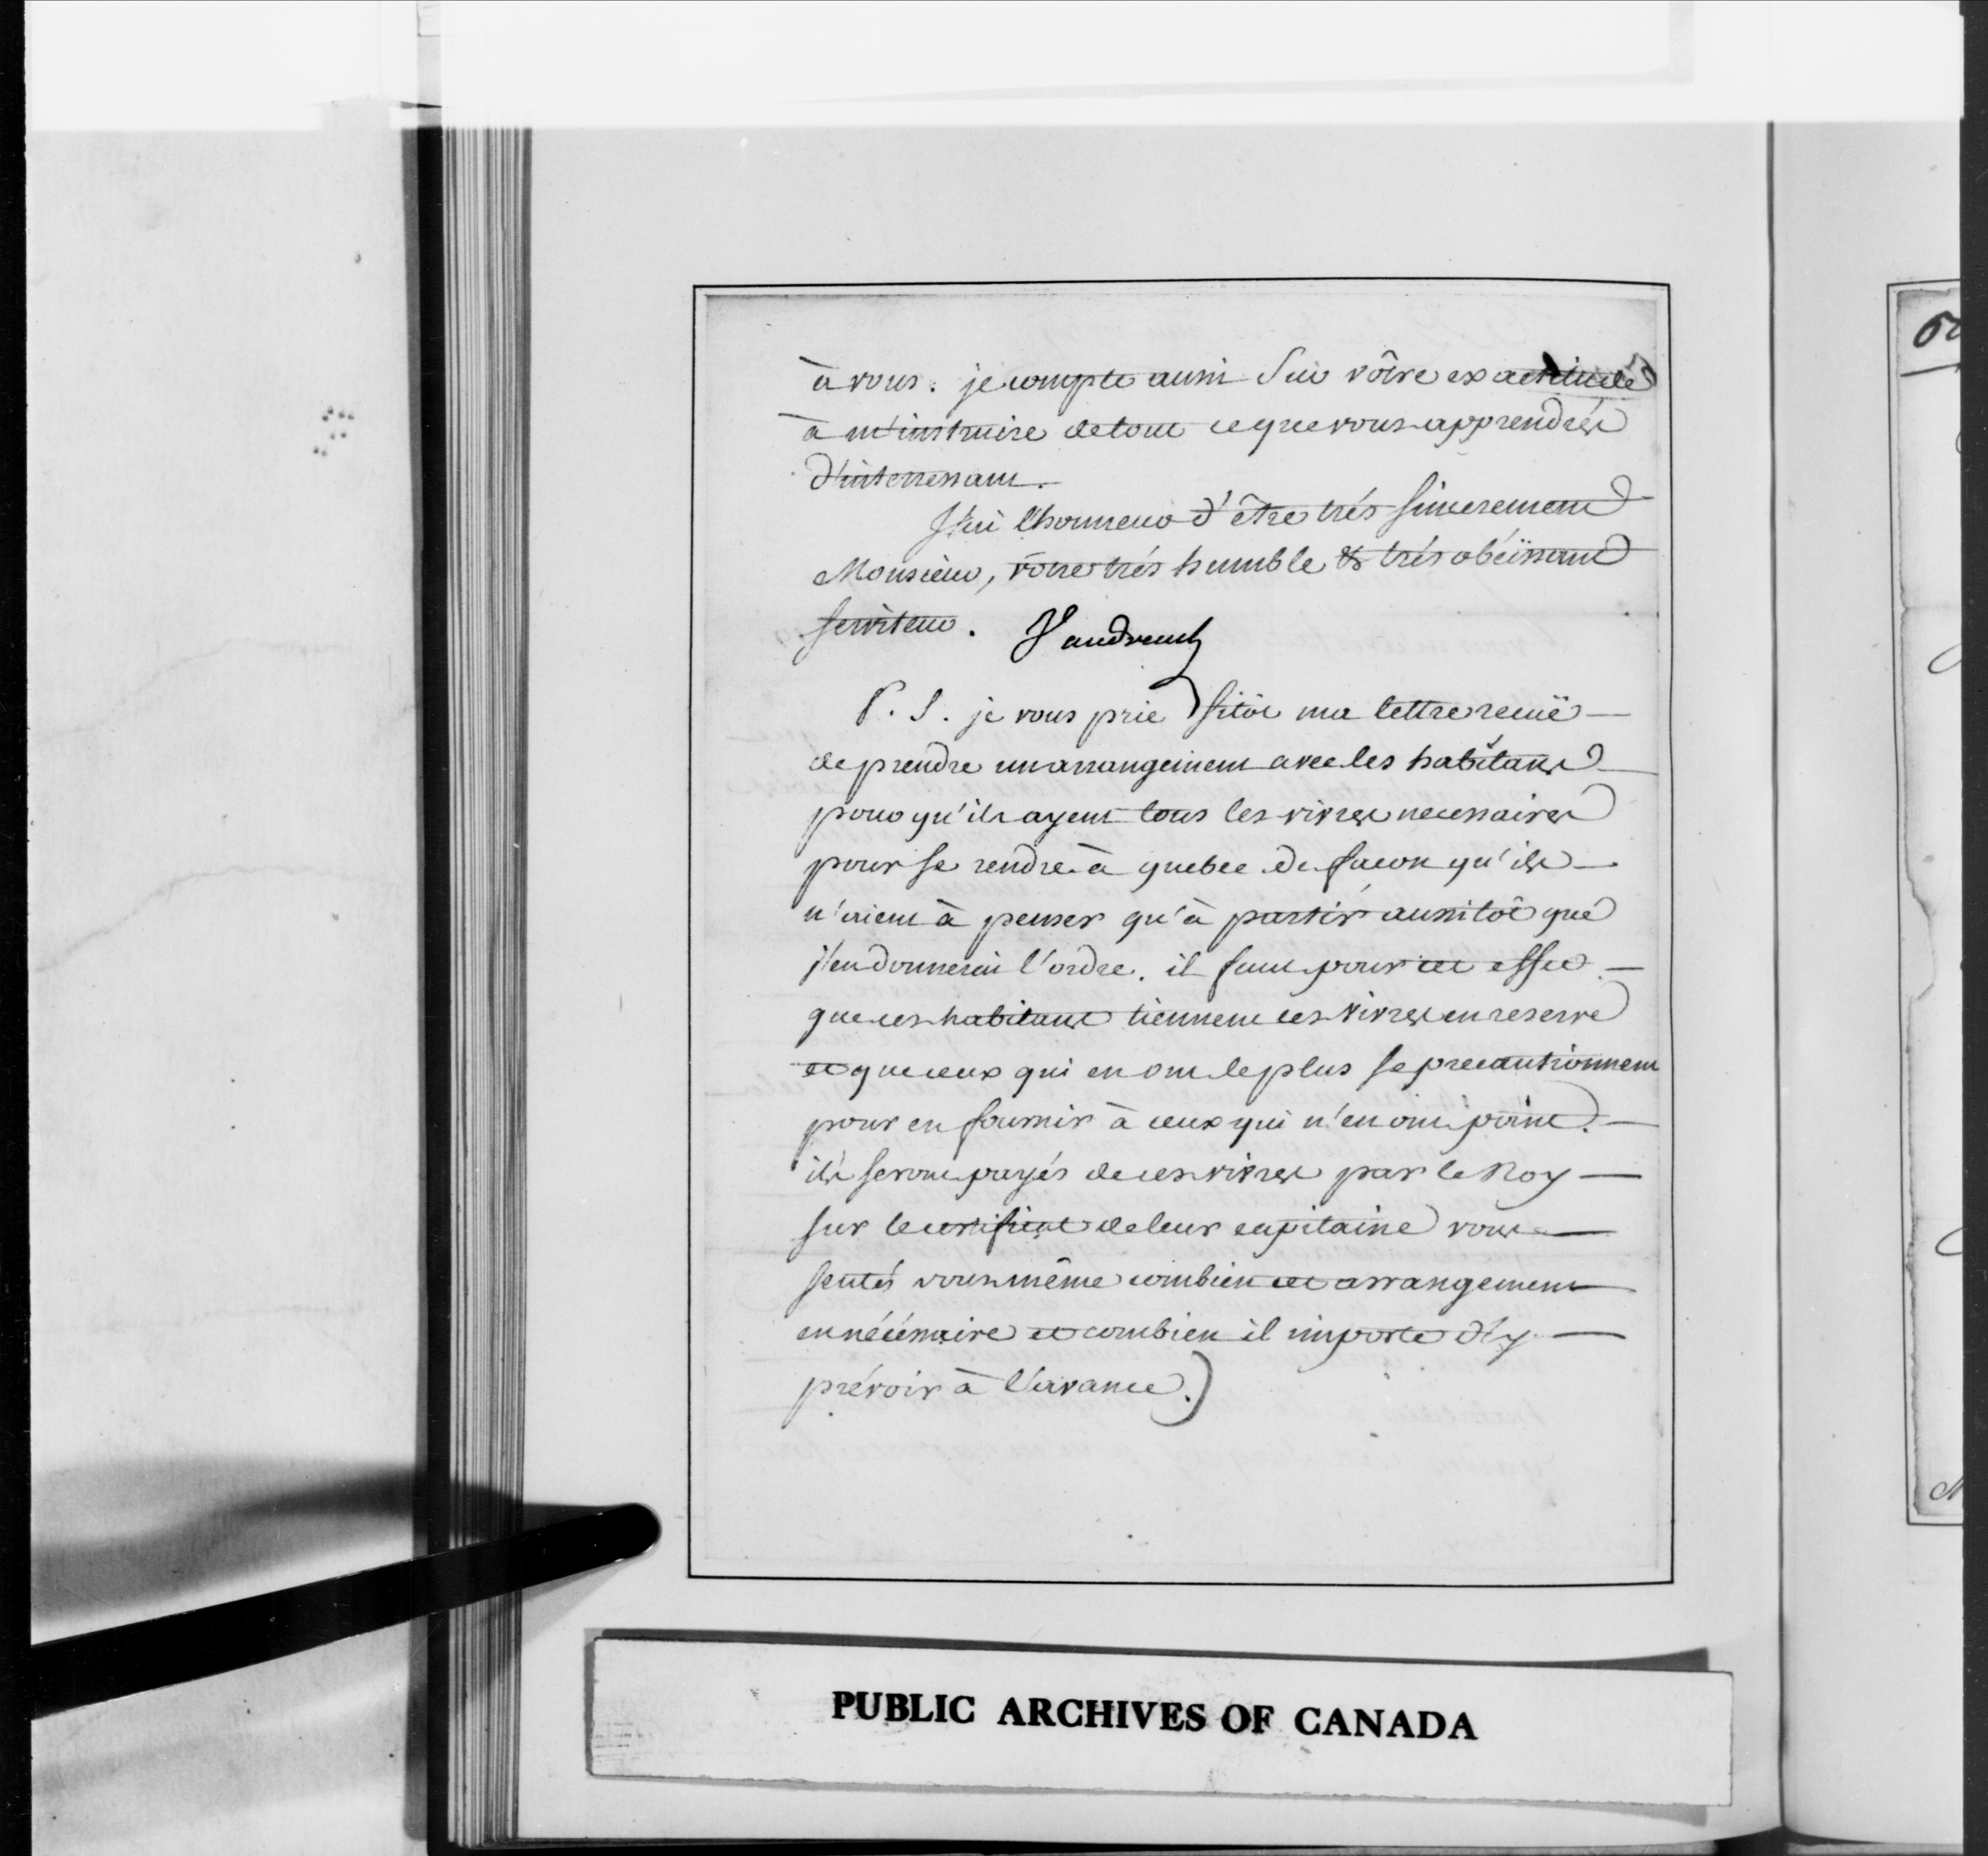 à vous. je compte aussi sur vôtre exactitude
à m'instruire de tout ce que vous apprendrés
d'interressant.
J'ai l'honneur d'être trés sincerement
Monsieur, vôtre trés humble & trés obéissant
serviteur. Vaudreuil
P. S. je vous prie sitôt ma lettre recuë
de prendre un arrangement avec les habitans
pour qu'ils ayent tous les vivres necessaires
pour se rendre à quebec de facon qu'ils
n'aient à penser qu'à partir aussitôt que
j'en donnerai l'ordre. il faut pour cet effet
que ces habitans tiennent ces vivres en reserve
et que ceux qui en ont le plus se precautionnent
pour en fournir à ceux qui n'en ont point.
ils seront payés de ces vivres par le Roy
sur le certificat de leur capitaine vous
sentés vous même combien cet arrangement
est nécéssaire et combien il importe d'y
prévoir à l'avance.)
PUBLIC ARCHIVES OF CANADA